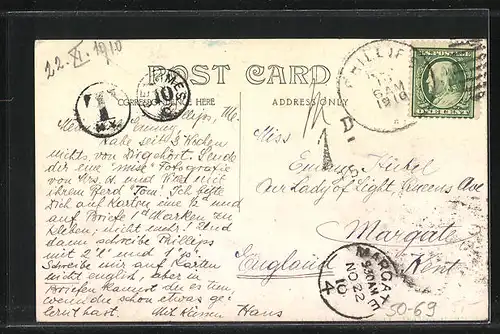 22. XI. 1910
POST CARD
CORRESPONDENCE HERE
ADDRESS ONLY
T
10
CENTIMES
PHILLIPS
6 AM
1910
ONE CENT
Phillips, Me.
Meine Emmy,
habe seit 3 Wochen
nichts von Dir gehört. Sende
dir eine Fotografie
von Mrs. und
ihrem Pferd "Tom". Ich bitte
Dich auf Karten eine ½d und
auf Briefe 1d Marken zu
kleben, nicht mehr! Und
dann schreibe Phillips
mit 2 "l" und 1 "p".
Schreibe mir auf Karten
nicht englisch, aber in
Briefen kannst du es tun,
wenn du schon etwas ge-
lernt hast. Mit Küssen Hans
Miss
Our Lady of Light, Queens Ave
Margate
Kent
England
1D
MARGATE
9.30 AM
NO 22
10
4
50-69